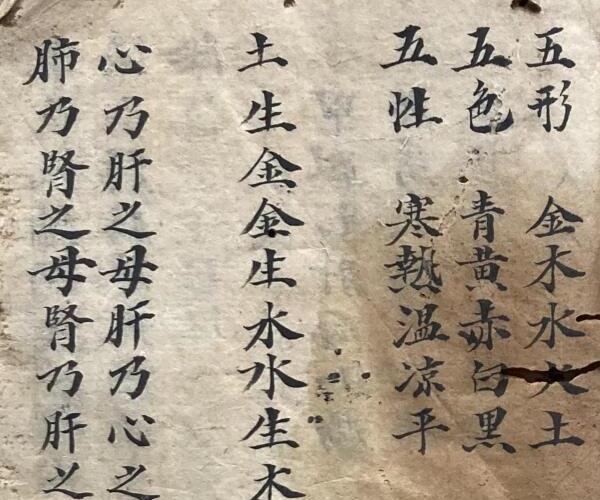 五形 金木水火土
五色 青黄赤白黑
五性 寒熱温凉平
土生金金生水水生木
心乃肝之母肝乃心之
肺乃腎之母腎乃肝之